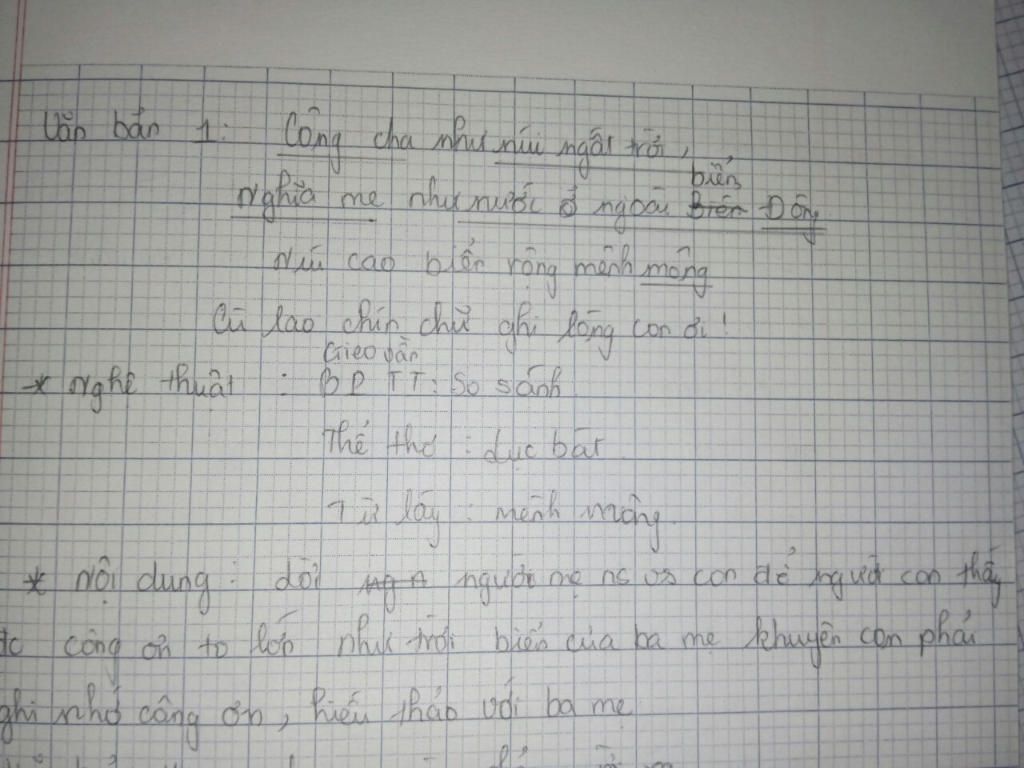 Văn bản 1: Công cha như núi ngất trời,
biển
Nghĩa mẹ như nước ở ngoài Biển Đông
Núi cao biển rộng mênh mông
Cù lao chín chữ ghi lòng con ơi!
Gieo vần
* Nghệ thuật : BPTT: So sánh
Thể thơ : Lục bát
Từ láy : mênh mông
* Nội dung : Lời người mẹ ns vs con để người con thấy
đc công ơn to lớn như trời biển của ba mẹ khuyên con phải
ghi nhớ công ơn, hiếu thảo với ba mẹ